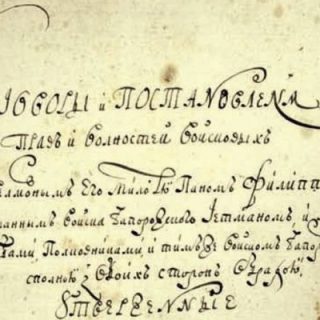 оговоры и Постановленїѧ
Правъ и волностей Войсковыхъ
елможнымъ Его Милостю Паномъ Филипп
раннымъ Войска Запорозского Гетманомъ, и
ами, Полковниками и тимъ же Войскомъ Запор
сполною з обоихъ сторонъ обрадою,
Утверженные